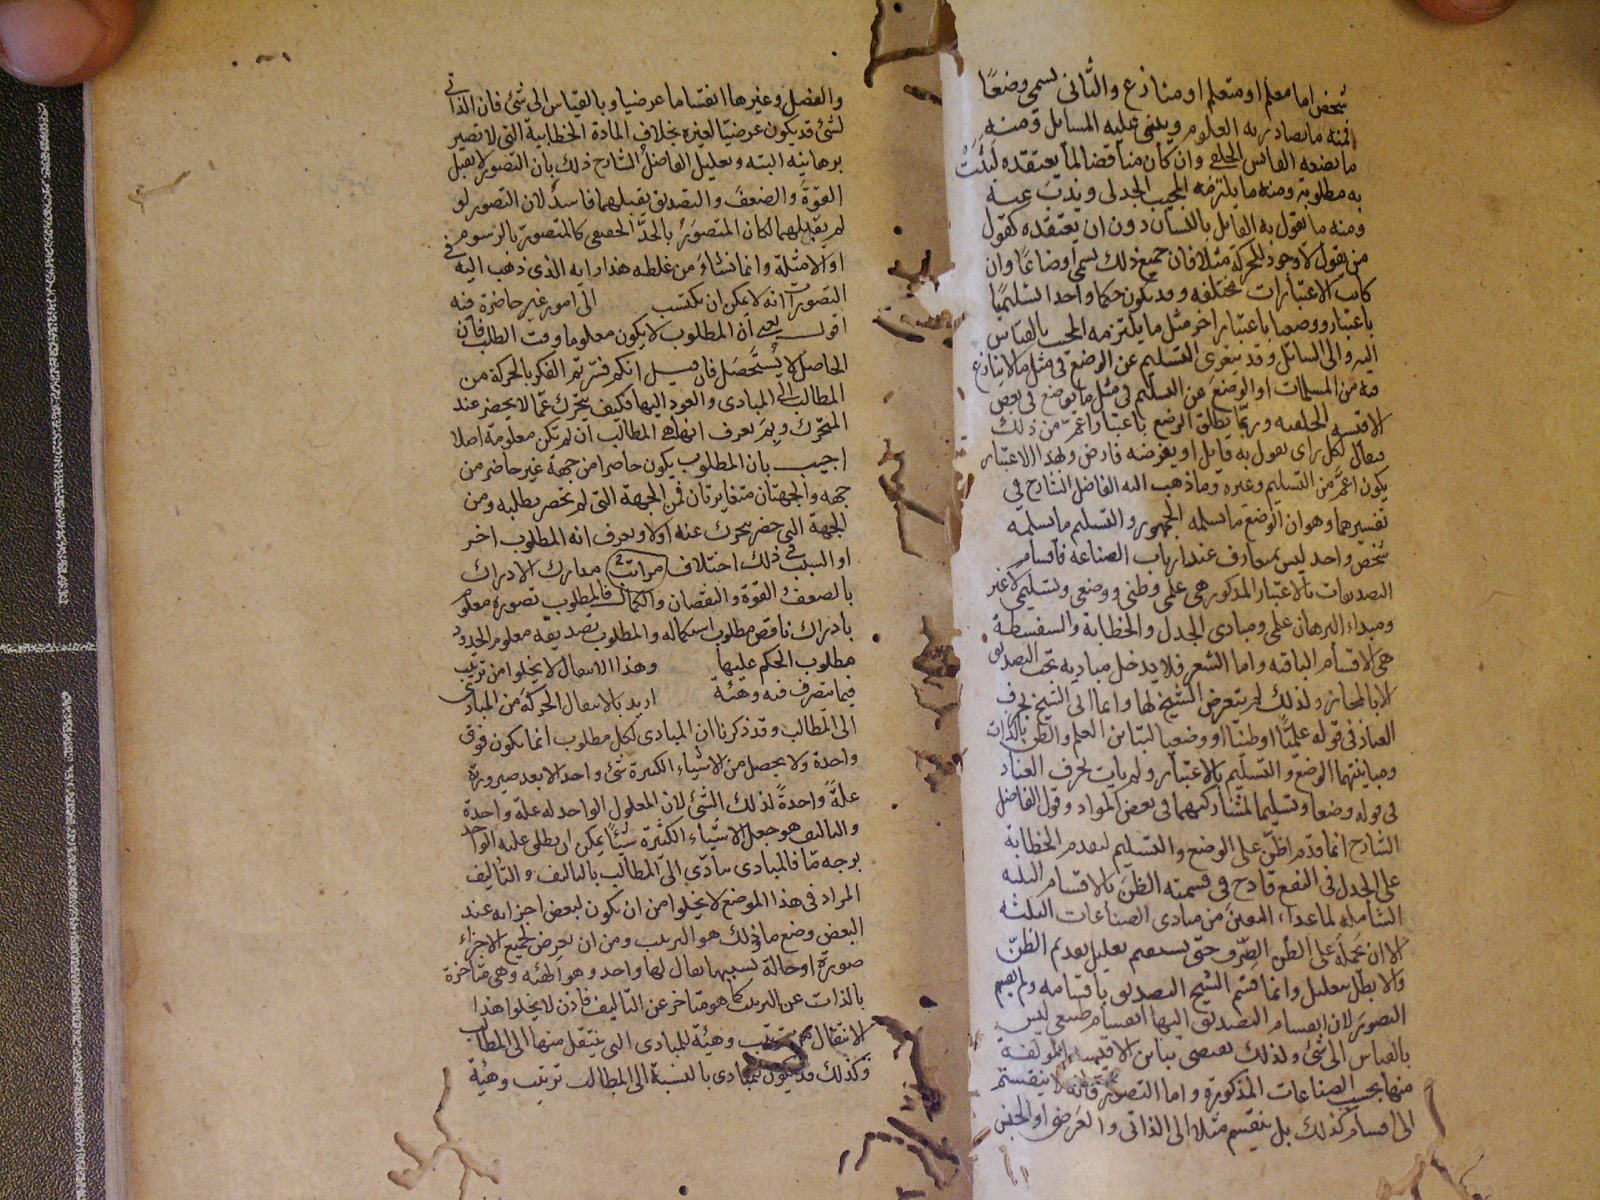 شخص اما معلم او متعلم او منازع والثاني يسمى وضعًا
فمنه ما يصادر به العلوم ويبنى عليه المسائل ومنه
ما يضعه القائس الخلفي وان كان مناقضا لما يعتقده ليثبت
به مطلوبه ومنه ما يلتزمه المجيب الجدلي ويذب عنه
ومنه ما يقول به القايل باللسان دون ان يعتقده كقول
من يقول لا وجود للحركة مثلا فان جميع ذلك يسمى اوضاعًا وان
كانت الاعتبارات مختلفة وقد يكون حكم واحد تسليميًا
باعتبار ووضعيا باعتبار اخر مثل ما يلتزمه المجيب بالقياس
اليه والى السائل وقد يتعرى التسليم عن الوضع في مثل ما لا ينازع
فيه من المسلمات او الوضع عن التسليم في مثل ما يوضع في بعض
الاقيسة الخلفية وربما يطلق الوضع باعتبار اعمّ من ذلك
فيقال لكل راى يقول به قايل او يفرضه فارض ولهذا الاعتبار
يكون اعمّ من التسليم وغيره وما ذهب اليه الفاضل الشارح في
تفسيرهما وهو ان الوضع ما يسلمه الجمهور والتسليم ما يسلمه
شخص واحد ليس بمتعارف عند ارباب الصناعة فاقسام
التصديقات بالاعتبار المذكور هي علمي وظني ووضعي وتسليمي لا غير
ومبداء البرهان علمي ومبادى الجدل والخطابة والسفسطة
هي الاقسام الباقية واما الشعر فلا يدخل مباديه تحت التصديق
الا بالمجاز ولذلك لم يتعرض الشيخ لها وانما اتى الشيخ بحرف
العناد في قوله علميًا او ظنيًا او وضعيا لتباين العلم والظن بالذات
ومباينتهما الوضع والتسليم بالاعتبار ولم يات بحرف العناد
في قوله وضعا وتسليما لتشاركهما في بعض المواد وقول الفاضل
الشارح انما قدم الظنّ على الوضع والتسليم لتقدم الخطابة
على الجدل في النفع قادح في قسمته الظنّ بالاقسام الثلثة
الشاملة لما عداء اليقين من مبادى الصناعات الثلثة
الا ان يحمله على الظن الصرف حتى يستقيم تعليل تقدم الظنّ
والا بطل تعليل وانما قسم الشيخ التصديق باقسامه ولم يقسم
التصور لان انقسام التصديق اليها انقسام طبيعي ليس
بالقياس الى شئ ولذلك يقتضي تباين الاقيسة المؤلفة
منها بحسب الصناعات المذكورة واما التصور فانه لا ينقسم
الى اقسام كذلك بل ينقسم مثلا الى الذاتي والعرضي او الجنس
والفصل وغيرها انقساما عرضيا وبالقياس الى شئ فان الذاتي
لشئ قد يكون عرضيًا لغيره بخلاف المادة الخطابية التي لا تصير
برهانية البته وتعليل الفاضل الشارح ذلك بان التصور لا يقبل
القوة والضعف والتصديق يقبلهما فاسد لان التصور لو
لم يقبلهما لكان المتصور بالحدّ الحقيقي كالمتصور بالرسوم
او الامثلة وانما نشاء من غلطه هذا رايه الذي ذهب اليه في
التصورات انه لا يمكن ان يكتسب الى امور غير حاضرة فيه
اقول يعني ان المطلوب لا يكون معلوما وقت الطلب فان
الحاصل لا يستحصل فان قيل انكم فسرتم الفكر بالحركة من
المطالب الى المبادى والعود اليها فكيف يتحرك عمّا لا يحضر عند
المتحرك وبِمَ يعرف انها هي المطالب ان لم تكن معلومة اصلا
اجيب بان المطلوب يكون حاضرا من جهة غير حاضر من
جهة والجهتان متغايرتان فمن الجهة التي لم تحضر يطلبه ومن
الجهة التي حضر يتحرك عنه اولا ويعرف انه المطلوب اخر
او السبب في ذلك اختلاف مراتب مدارك الادراك
بالضعف والقوة والنقصان والكمال فالمطلوب تصوره معلوم
بادراك ناقص مطلوب استكماله والمطلوب تصديقه معلوم الحدود
مطلوب الحكم عليها وهذا الانتقال لا يخلوا من ترتيب
فيما يتصرف فيه وهيئة اريد بالانتقال الحركة من المبادى
الى المطالب وقد ذكرنا ان المبادى لكل مطلوب انما يكون فوق
واحدة ولا يحصل من الاشياء الكثيرة شئ واحد الا بعد صيرورة
علةً واحدةً لذلك الشئ لان المعلول الواحد له علة واحدة
والتاليف هو جعل الاشياء الكثيرة شيئًا يمكن ان يطلق عليه الواحد
بوجه مّا فالمبادى يتادّى الى المطالب بالتاليف والتأليف
المراد في هذا الموضع لا يخلوا من ان يكون لبعض اجزائه عند
البعض وضع ما وذلك هو الترتيب ومن ان يعرض لجميع الاجزاء
صورة او حالة بسببها يقال لها واحد وهو الهيئة وهي متاخرة
بالذات عن الترتيب كما هو متاخر عن التأليف فاذن لا يخلوا هذا
الانتقال من ترتيب وهيئة للمبادى التي ينتقل منها الى المطالب
وكذلك قد يكون للمبادى بالنسبة الى المطالب ترتيب وهيئة